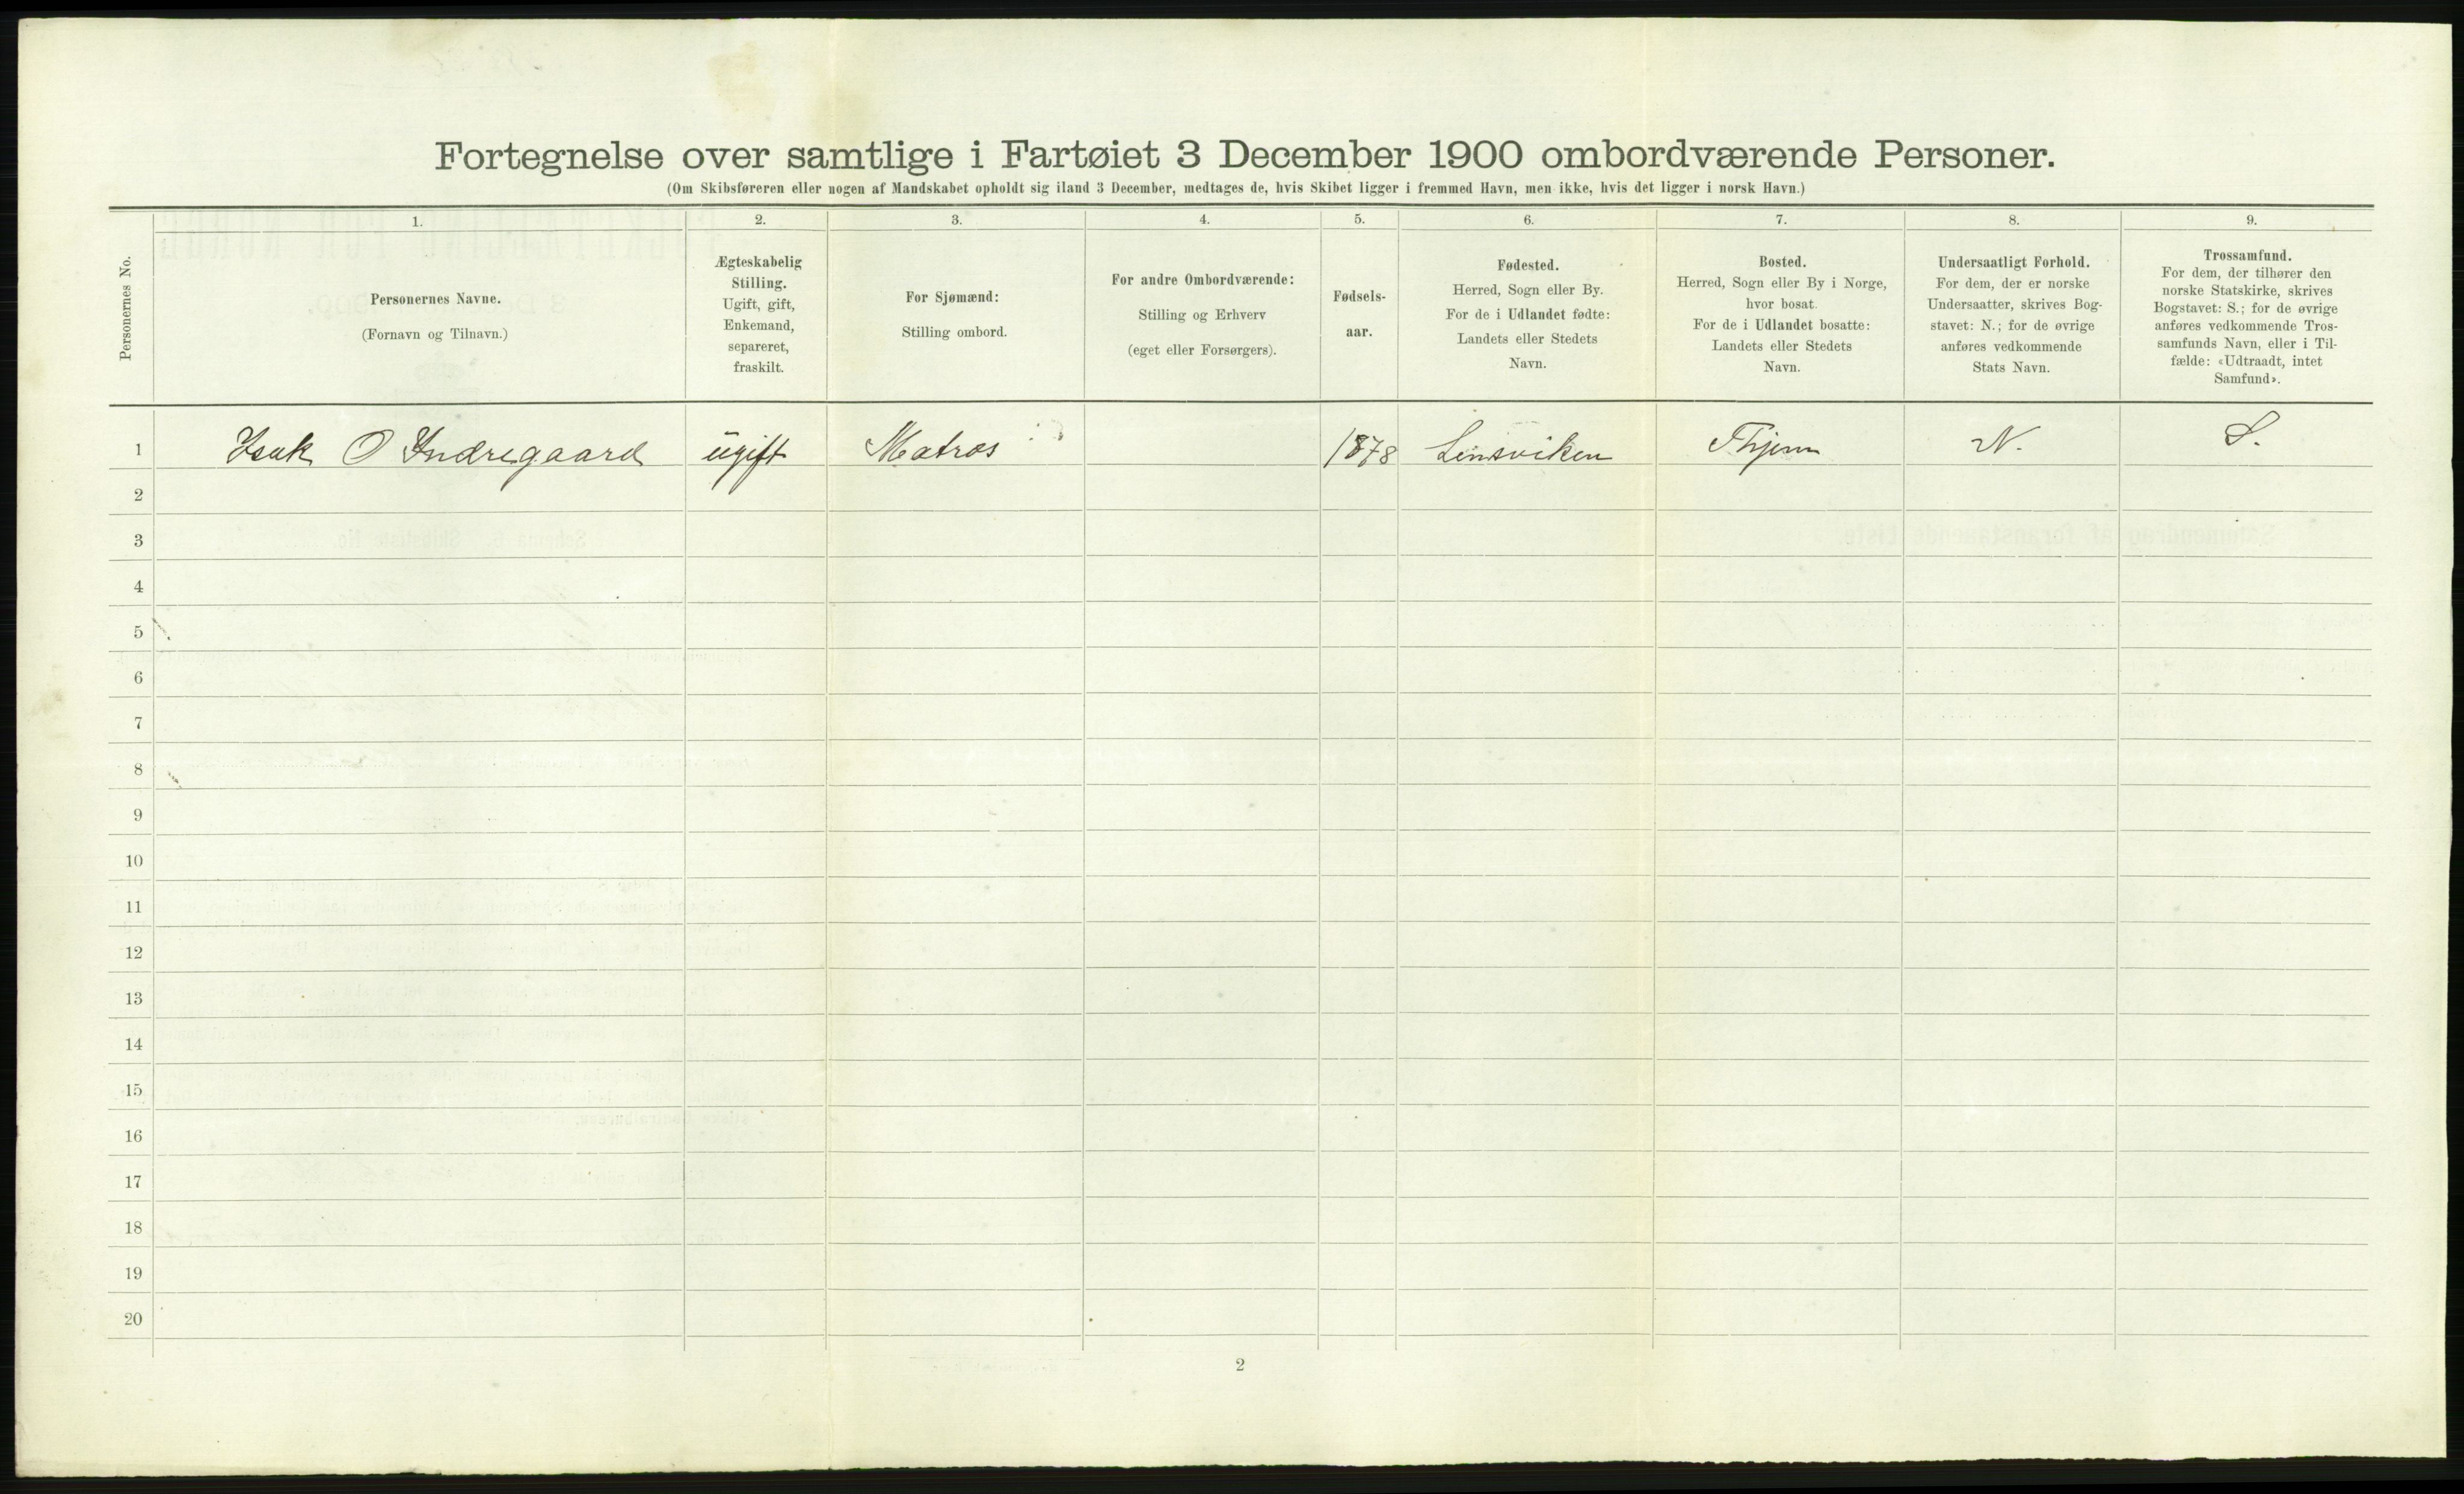 Fortegnelse over samtlige i Fartøiet 3 December 1900 ombordværende Personer.
(Om Skibsføreren eller nogen af Mandskabet opholdt sig iland 3 December, medtages de, hvis Skibet ligger i fremmed Havn, men ikke, hvis det ligger i norsk Havn.)
Personernes No.
1.
Personernes Navne.
(Fornavn og Tilnavn.)
2.
Ægteskabelig
Stilling.
Ugift, gift,
Enkemand,
separeret,
fraskilt.
3.
For Sjømænd:
Stilling ombord.
4.
For andre Ombordværende:
Stilling og Erhverv
(eget eller Forsørgers).
5.
Fødsels-
aar.
6.
Fødested.
Herred, Sogn eller By.
For de i Udlandet fødte:
Landets eller Stedets
Navn.
7.
Bosted.
Herred, Sogn eller By i Norge,
hvor bosat.
For de i Udlandet bosatte:
Landets eller Stedets
Navn.
8.
Undersaatligt Forhold.
For dem, der er norske
Undersaatter, skrives Bog-
stavet: N.; for de øvrige
anføres vedkommende
Stats Navn.
9.
Trossamfund.
For dem, der tilhører den
norske Statskirke, skrives
Bogstavet: S.; for de øvrige
anføres vedkommende Tros-
samfunds Navn, eller i Til-
fælde: «Udtraadt, intet
Samfund».
1 Isak O Indregaard ugift Matros 1878 Linsviken N. S.
2
3
4
5
6
7
8
9
10
11
12
13
14
15
16
17
18
19
20
2